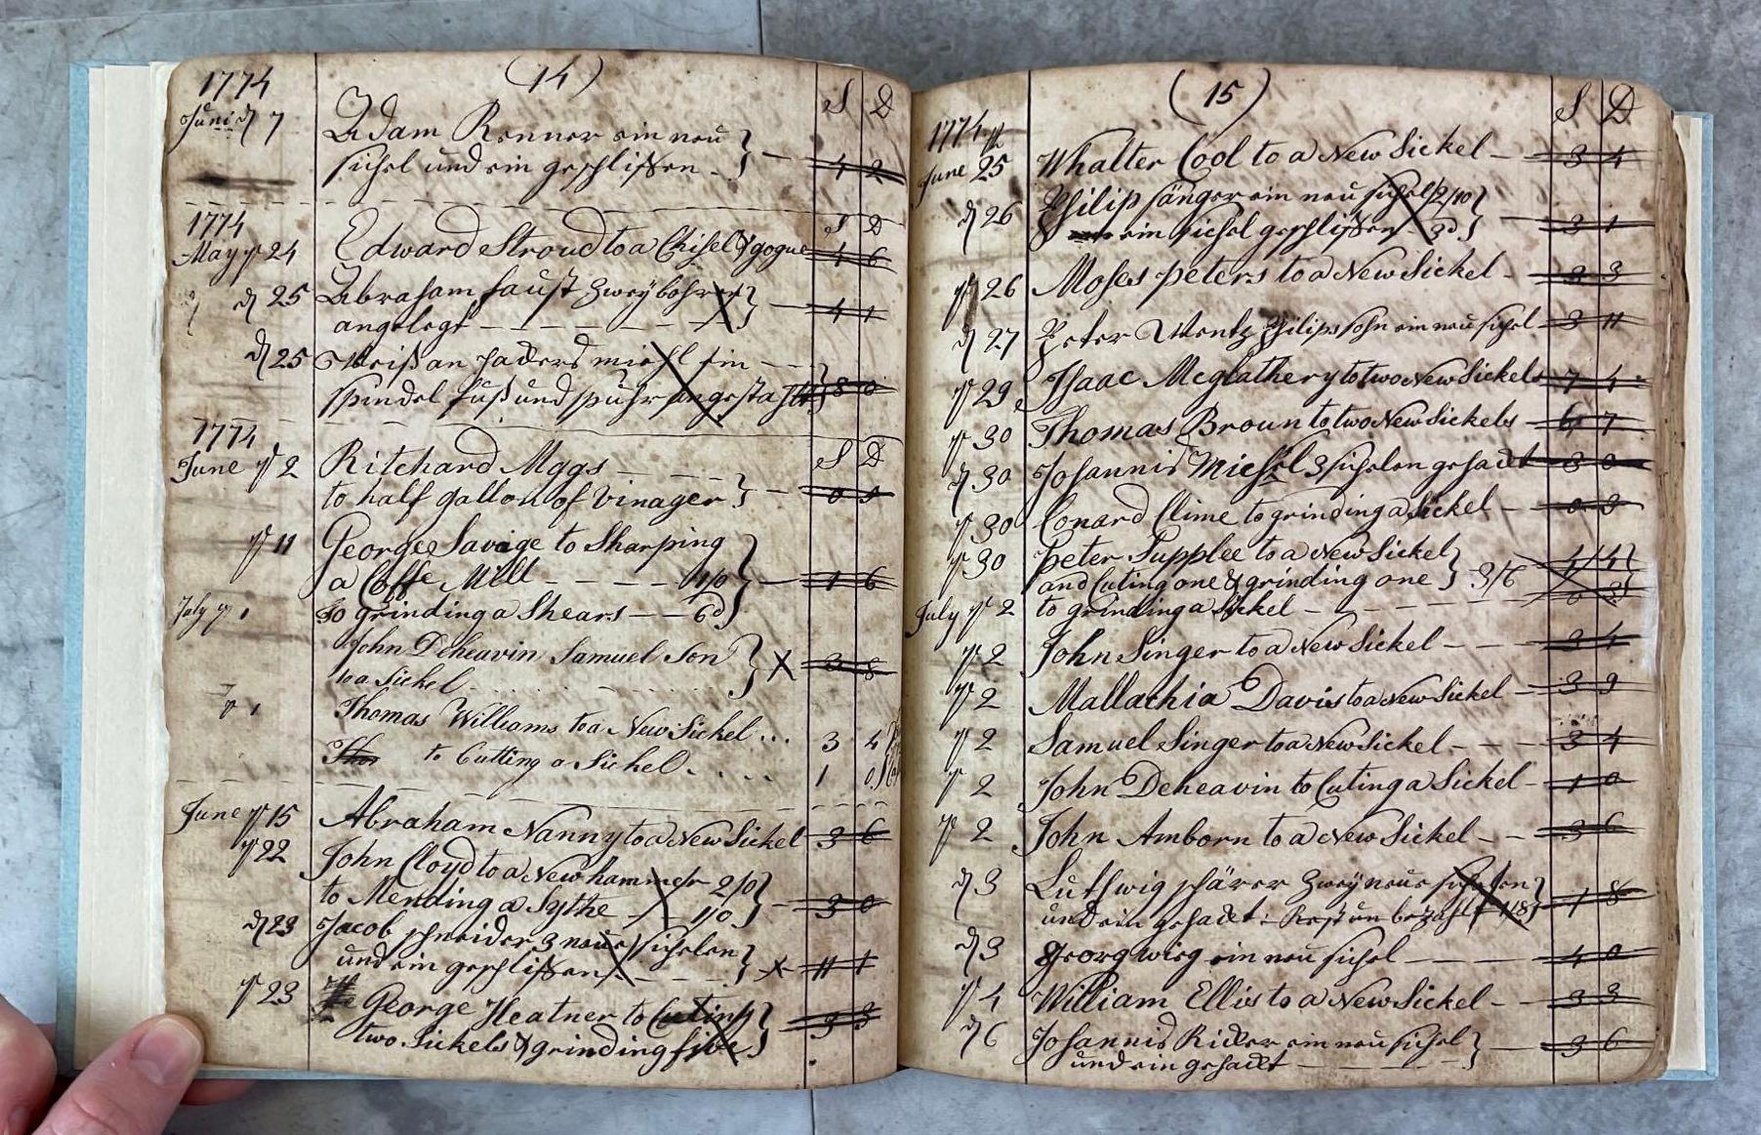 1774 (14) S D
Juni d 7 Adam Renner ein neu
sichel und ein geschlissen - 4 2
1774 S D
May ye 24 Edward Stroud to a Chisel & gogue 4 6
d 25 Abraham faust Zwey bohrer
angelegt - 4 1
d 25
spindel fuß und spuhr angestahlt 8 0
1774
June ye 2 Ritchard Mggs S D
to half gallon of Vinager - 0
ye 11 George Savage to Sharping
a Coffe Mill - - - - 1/0 - 1 6
July ye 1 to grinding a Shears - - 6d
John Deheavin Samuel Son
to a Sickel X 3 8
ye 1 Thomas Williams to a New Sickel ... 3 4
Thos to Cutting a Sickel . . . . 1 0
June ye 15 Abraham Nanny to a New Sickel 3 6
ye 22 John Cloyd to a New hammer 2/0
to Mending a Sythe - 1/0 - 3 0
d 23 Jacob schneider 3 neue sichelen
und ein geschlissen - - X 11 1
ye 23 George Heatner to Cuting
two Sickels & grinding five 3 3
(15) S D
1774
June ye 25 Whalter Cool to a New Sickel - 3 4
d 26 Philip sänger ein neu sichel 2/10
ein sichel geschlissen - 3d - 3 1
ye 26 Moses peters to a New Sickel - 3 3
d 27 Peter Wentz Philips sohn ein neu sichel - 3 11
ye 29 Isaac Mcglathery to two New Sickels 7 4
ye 30 Thomas Broun to two New Sickels - 6 7
d 30 Johannis Michel 3 sichelen gehackt 3 0
ye 30 Conard Clime to grinding a Sickel - 0 3
ye 30 peter Supplee to a New Sickel 4/4
and Cuting one & grinding one 3/6
July ye 2 to grinding a Sickel - - - 0 3
ye 2 John Singer to a New Sickel - - - 3 4
ye 2 Mallachia Davis to a New Sickel - 3 9
ye 2 Samuel Singer to a New Sickel - - - 3 4
ye 2 John Deheavin to Cuting a Sickel - 1 0
ye 2 John Amborn to a New Sickel - - 3 6
d 3 Luthwig schärer Zwey neue sichelen
und ein gehackt: Rest un bezahlt 1/8 - 1 8
d 3 georg wieg ein neu sichel - - - 4 0
ye 4 William Ellis to a New Sickel - - 3 3
d 6 Johannis Ricker ein neu sichel
und ein gehackt - - - 3 6